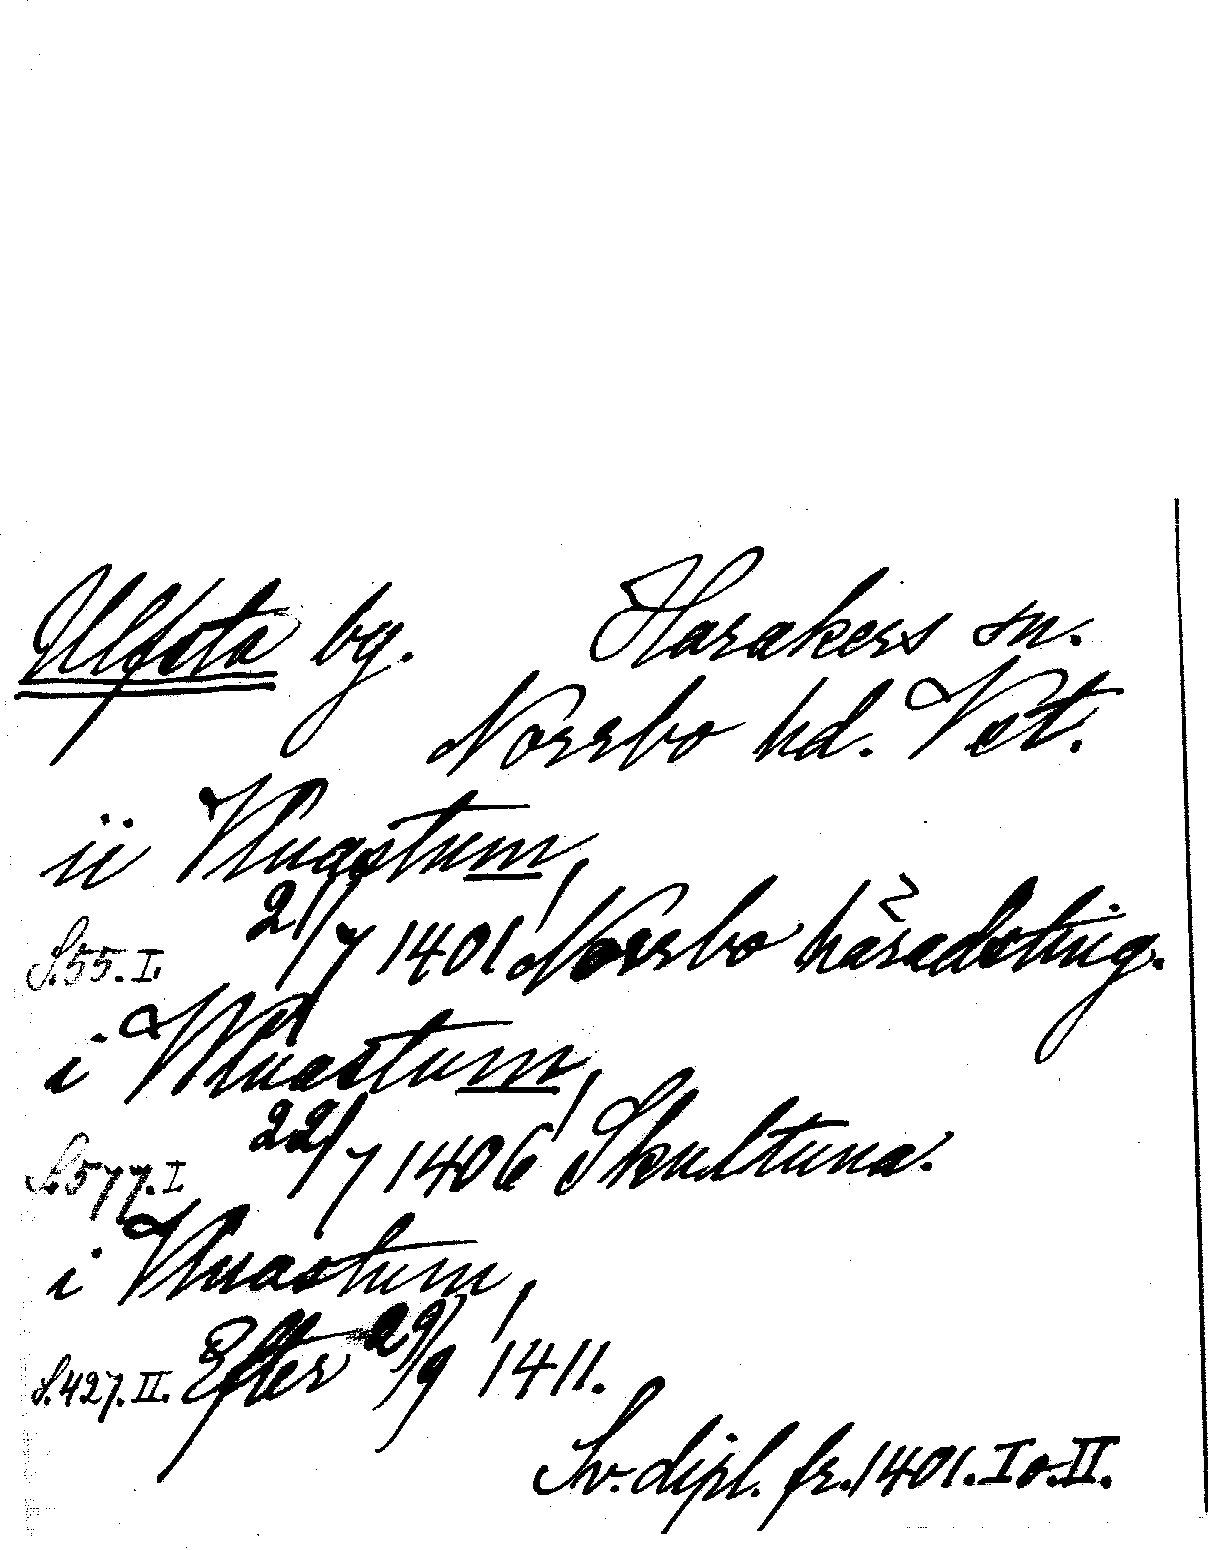 Ulfsta bg. Harakers sn.
Norrbo hd. Vst.
ii Vluastum,
S. 55. I. 21/7 1401, Norrbo häradsting.
i Vluastum,
S. 577. I. 22/7 1406, Skultuna.
i Vluastum,
S. 427. II. Efter 29/9 1411.
Sv. dipl. fr. 1401. I o. II.